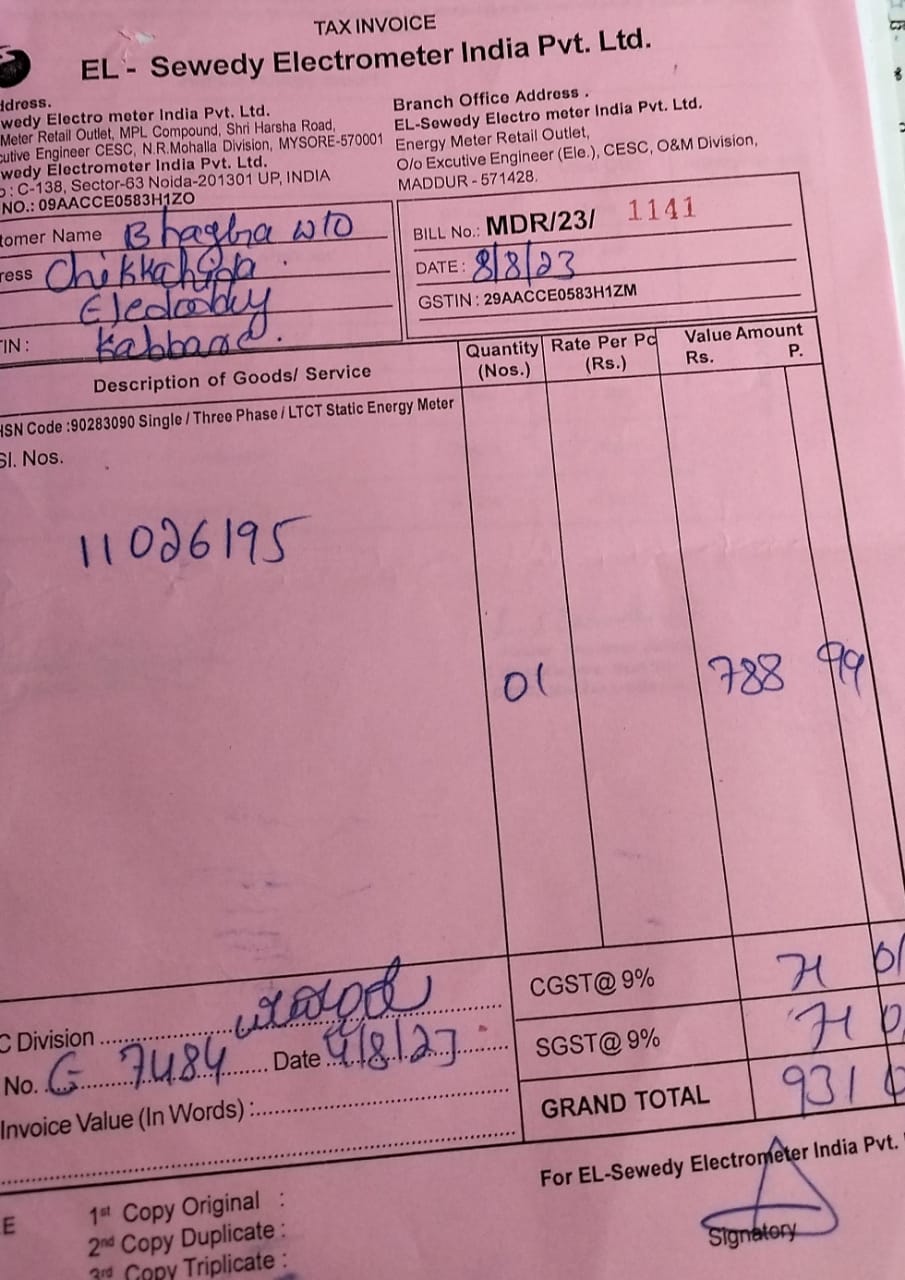 TAX INVOICE
EL - Sewedy Electrometer India Pvt. Ltd.
ddress.
wedy Electro meter India Pvt. Ltd.
Meter Retail Outlet, MPL Compound, Shri Harsha Road,
cutive Engineer CESC, N.R.Mohalla Division, MYSORE-570001
wedy Electrometer India Pvt. Ltd.
: C-138, Sector-63 Noida-201301 UP, INDIA
NO.: 09AACCE0583H1ZO
Branch Office Address .
EL-Sewedy Electro meter India Pvt. Ltd.
Energy Meter Retail Outlet,
O/o Excutive Engineer (Ele.), CESC, O&M Division,
MADDUR - 571428.
tomer Name W/O
ress
TIN :
BILL No.: MDR/23/ 1141
DATE : 8/8/23
GSTIN : 29AACCE0583H1ZM
Description of Goods/ Service
Quantity (Nos.)
Rate Per Pc (Rs.)
Value Amount
Rs. P.
HSN Code :90283090 Single / Three Phase / LTCT Static Energy Meter
Sl. Nos.
11026195
01 788 99
C Division
No. G 7484 Date 4/8/23
Invoice Value (In Words) :
CGST@ 9% 71 01
SGST@ 9% 71
GRAND TOTAL 931
For EL-Sewedy Electrometer India Pvt.
Signatory
E
1st Copy Original :
2nd Copy Duplicate :
3rd Copy Triplicate :